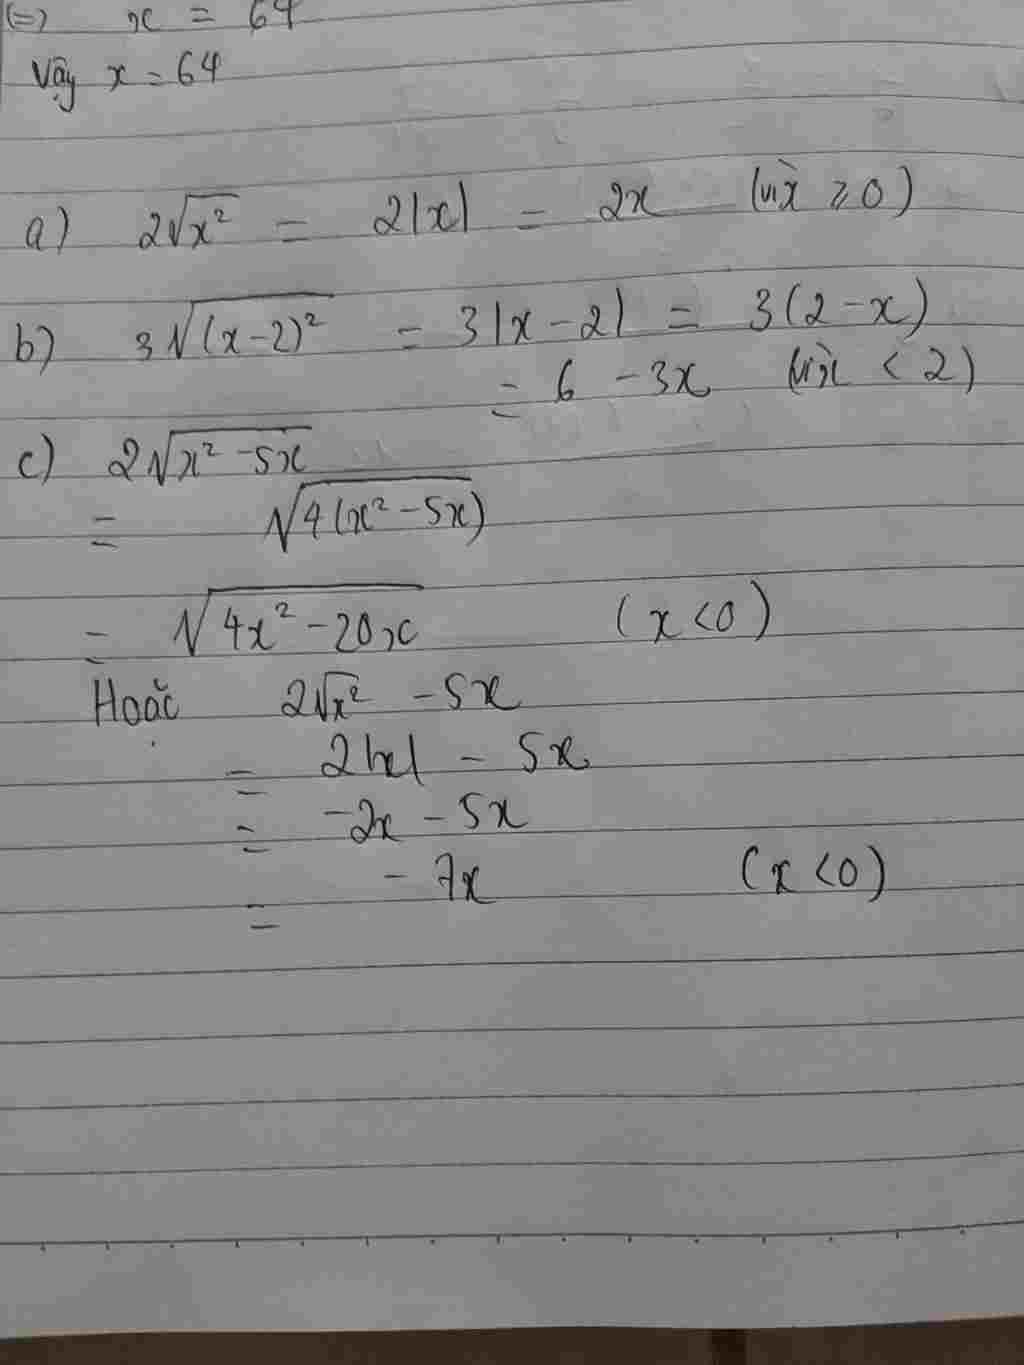 (=) x = 64
Vậy x = 64
a) 2√x² = 2|x| = 2x (vì x ≥ 0)
b) 3√(x-2)² = 3|x-2| = 3(2-x)
= 6 - 3x (vì x < 2)
c) 2√x² - 5x
= √4(x² - 5x)
= √4x² - 20x (x < 0)
Hoặc 2√x² - 5x
= 2|x| - 5x
= -2x - 5x
= - 7x (x < 0)